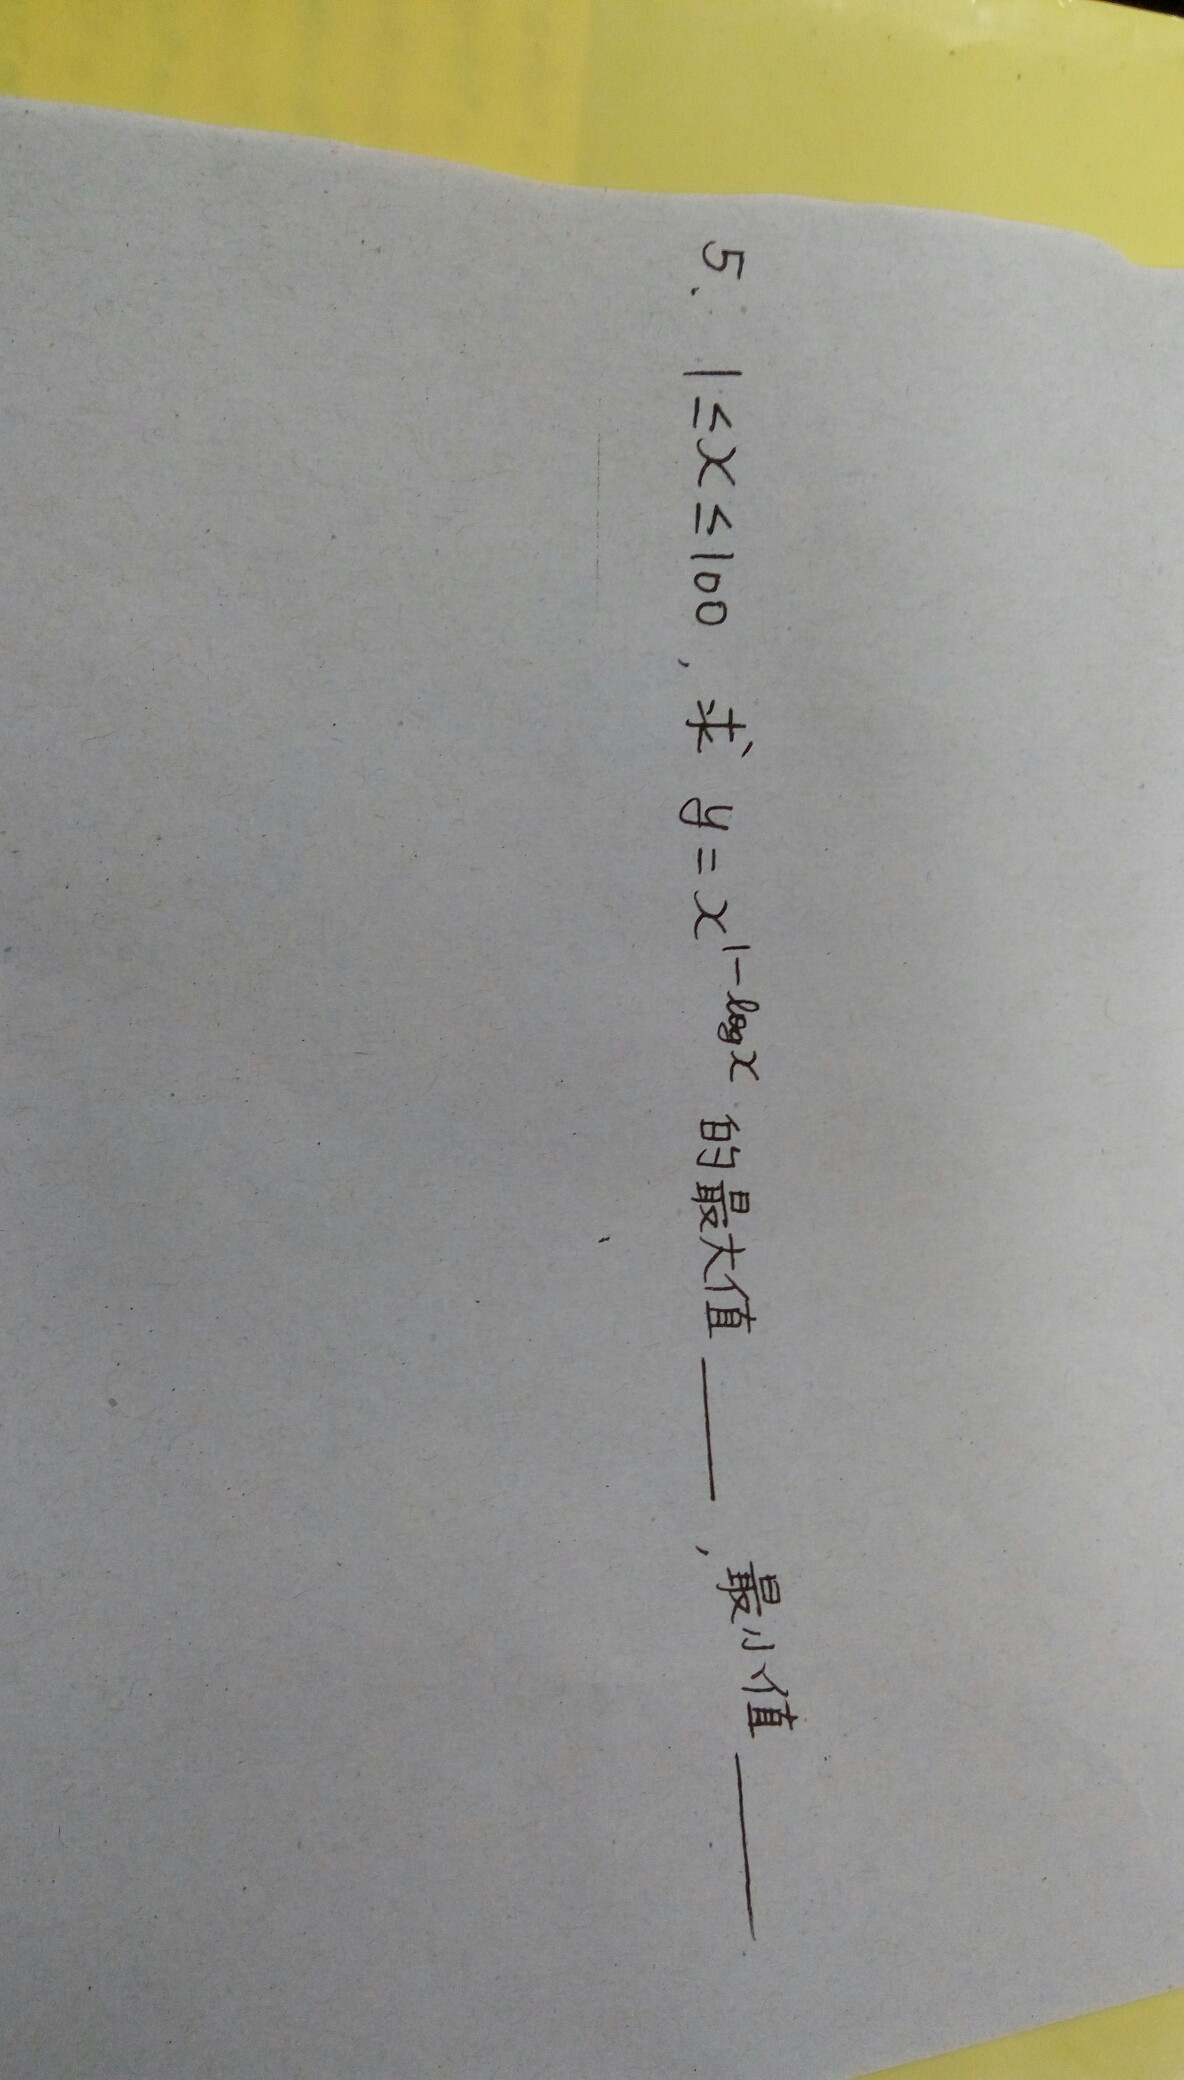 5、 1≤x≤100, 求 y=x^{1-log x} 的最大值 ____ , 最小值 ____.